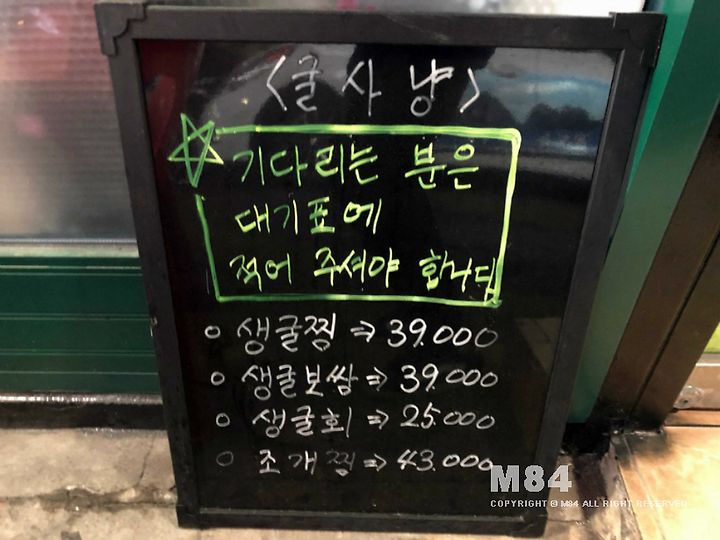 <굴사냥>
기다리는 분은
대기표에
적어 주셔야 합니다
○ 생굴찜 ⇒ 39.000
○ 생굴보쌈 ⇒ 39.000
○ 생굴회 ⇒ 25.000
○ 조개찜 ⇒ 43.000
M84
COPYRIGHT © M84 ALL RIGHT RESERVED